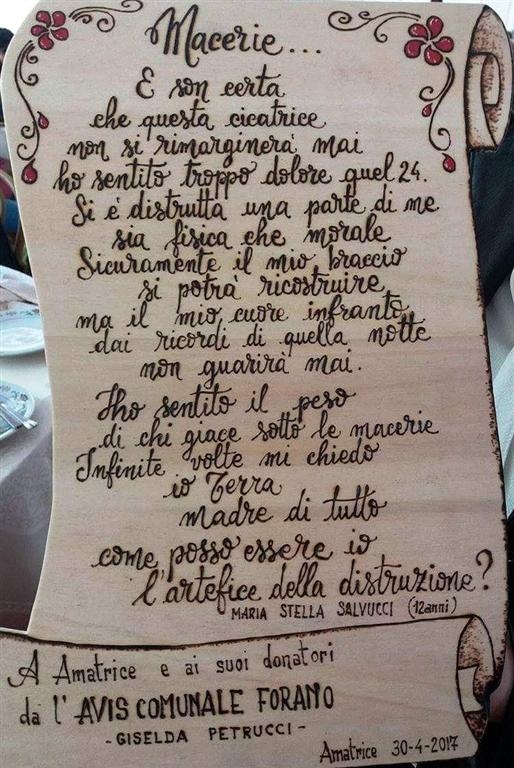 Macerie...
E son certa
che questa cicatrice
non si rimarginerà mai
ho sentito troppo dolore quel 24.
Si è distrutta una parte di me
sia fisica che morale
Sicuramente il mio braccio
si potrà ricostruire
ma il mio cuore infranto
dai ricordi di quella notte
non guarirà mai.
Ho sentito il peso
di chi giace sotto le macerie
Infinite volte mi chiedo
io Terra
madre di tutto
come posso essere io
l'artefice della distruzione?
MARIA STELLA SALVUCCI (12anni)
A Amatrice e ai suoi donatori
da l'AVIS COMUNALE FORANO
- GISELDA PETRUCCI -
Amatrice 30-4-2017